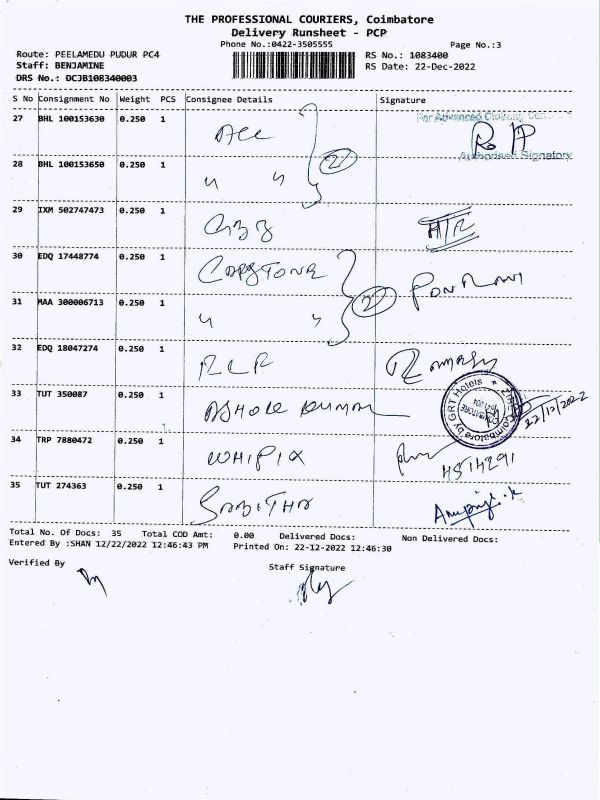 THE PROFESSIONAL COURIERS, Coimbatore
Delivery Runsheet - PCP
Phone No.:0422-3505555
Page No.:3
Route: PEELAMEDU PUDUR PC4
RS No.: 1083400
Staff: BENJAMINE
RS Date: 22-Dec-2022
DRS No.: DCJB108340003
S No Consignment No Weight PCS Consignee Details Signature
27 BHL 100153630 0.250 1
For Advanced
Authorised Signatory
28 BHL 100153650 0.250 1 " "
2
29 IXM 502747473 0.250 1
30 EDQ 17448774 0.250 1 CAPSTONE
31 MAA 300006713 0.250 1 " "
2
32 EDQ 18047274 0.250 1 Ramesh
33 TUT 350087 0.250 1 ASHOK KUMAR
Coimbatore by GRT Hotels
22/12/2022
34 TRP 7880472 0.250 1 WHIPIX
35 TUT 274363 0.250 1 SABITHA
Total No. Of Docs: 35 Total COD Amt: 0.00 Delivered Docs: Non Delivered Docs:
Entered By :SHAN 12/22/2022 12:46:43 PM Printed On: 22-12-2022 12:46:30
Verified By
Staff Signature